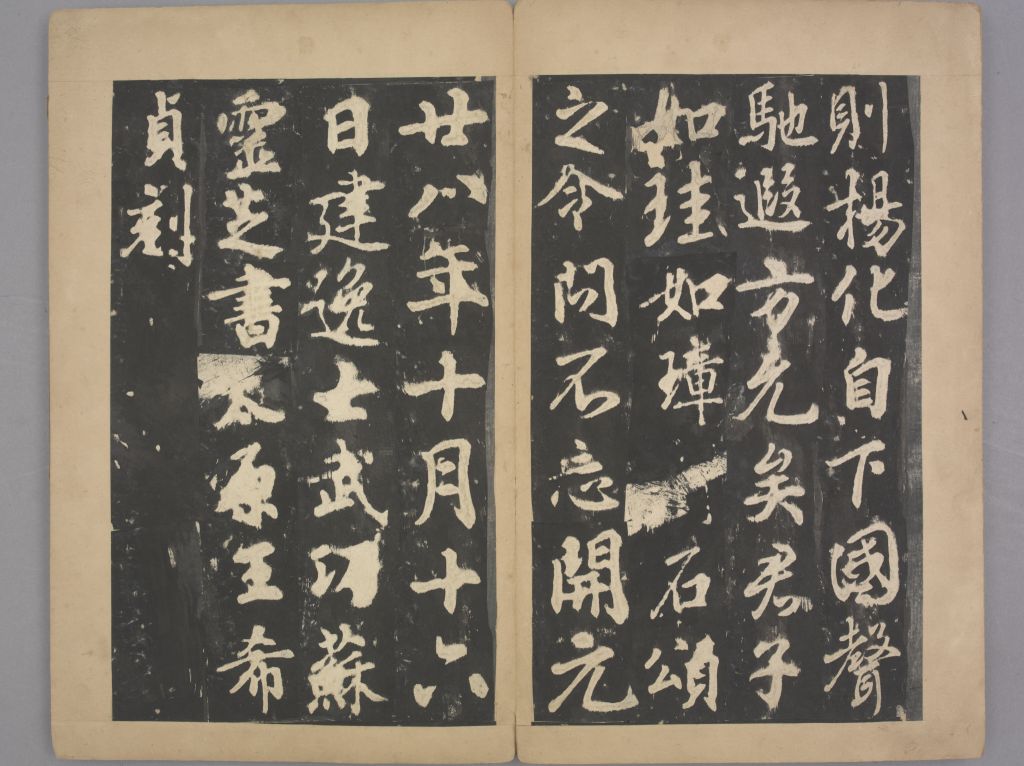 則楊化自下國聲
馳遐方光矣君子
如珪如璋石頌
之令問不忘開元
廿八年十月十六
日建逸士武功蘇
靈芝書太原王希
貞刻